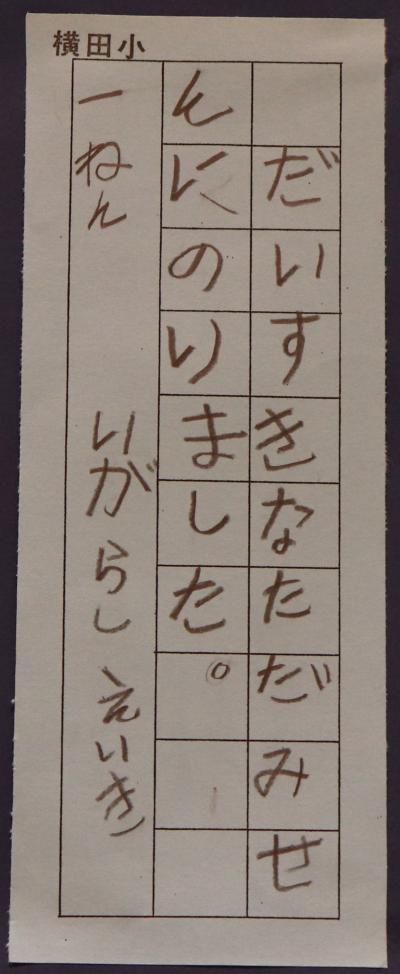 横田小
だいすきなただみせ
んにのりました。
一ねん いがらし えいき